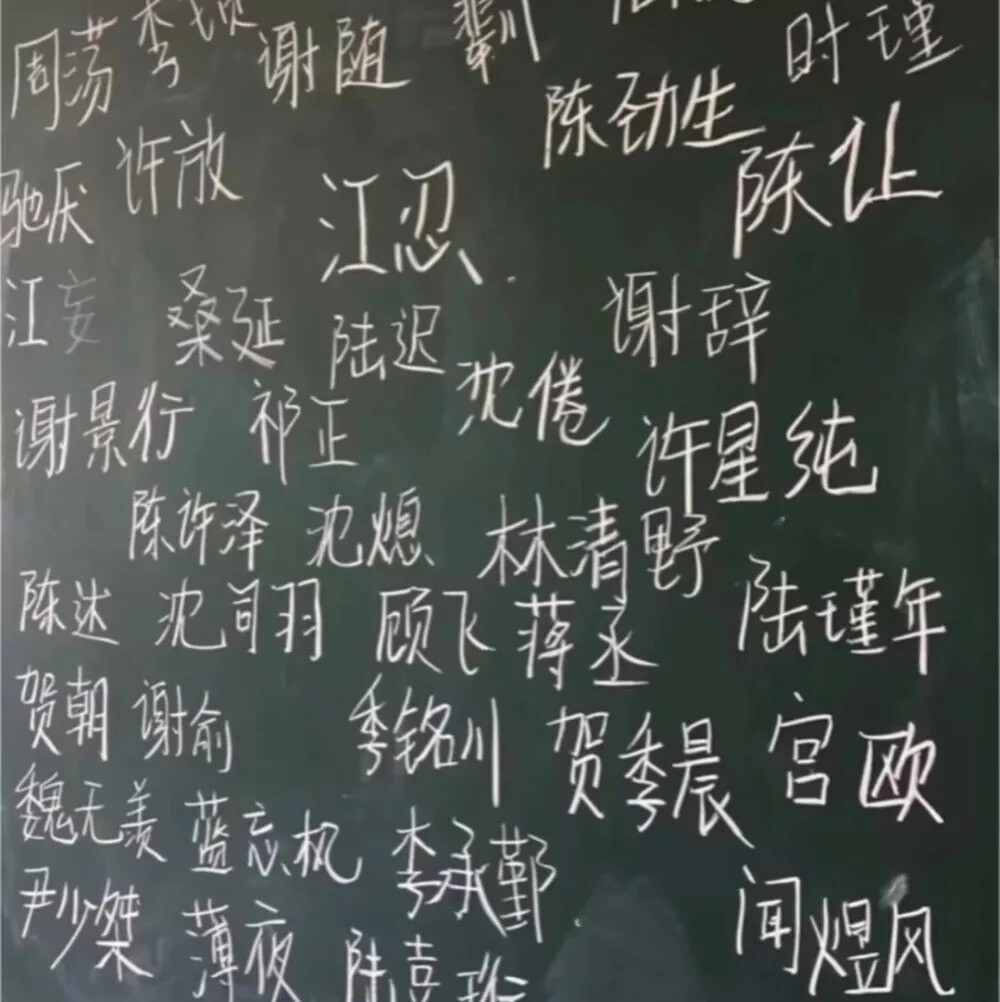 周荡 李 谢随 时瑾
陈劲生
驰厌 许放 江忍 陈让
江妄 桑延 陆迟 谢辞
谢景行 祁正 沈倦 许星纯
陈许泽 沈熄 林清野
陈达 沈司羽 顾飞 蒋丞 陆瑾年
贺朝 谢俞 季铭川 贺季晨 宫欧
魏无羡 蓝忘机 李承鄞
尹少桀 薄夜 陆喜珩 闻煜风